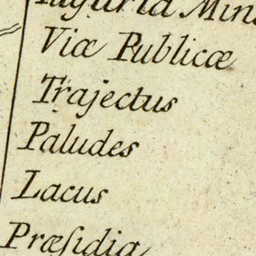 Viæ Publicæ
Trajectus
Paludes
Lacus
Præſidia